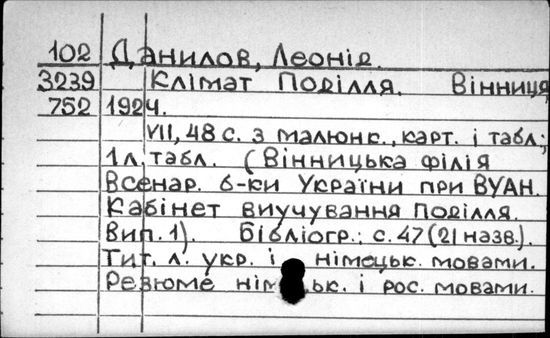 102 Данилов, Леонід.
3239 Клімат Поділля. Вінниця
752 1924.
VII, 48 с. з малюнк., карт. і табл;
1 л. табл. (Вінницька філія
Всенар. б-ки України при ВУАН.
Кабінет виучування Поділля.
Вип. 1). Бібліогр.: с. 47 (21 назв.).
Тит. л. укр. і німецьк. мовами.
Резюме і рос. мовами.